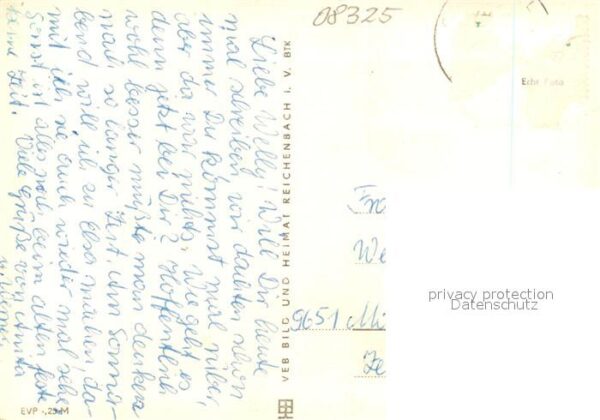 08325
Liebe Welly! Will Dir heute
mal schreiben, wir dachten schon
immer Du kommst mal rüber,
aber da war nichts. Wie geht es
denn jetzt bei Dir? Hoffentlich
wohl besser müßte man denken
nach so langer Zeit. Am Sonna-
bend will ich zu Elsa machen da-
mit ich sie auch wieder mal sehe
Sonst ist alles noch beim alten, feste
keine Zeit. Viele Grüße von Anita
VEB BILD UND HEIMAT REICHENBACH I. V. BTK
Echt Foto
We
9651
EVP -,25 M
privacy protection
Datenschutz